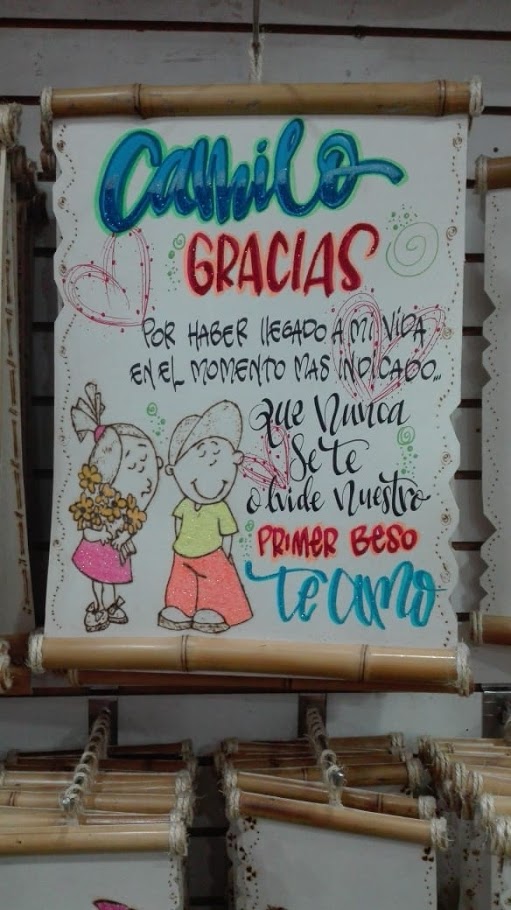 Camilo
GRACIAS
POR HABER LLEGADO A MI VIDA
EN EL MOMENTO MAS INDICADO...
que Nunca
Se te
olvide Nuestro
PRIMER BESO
te amo